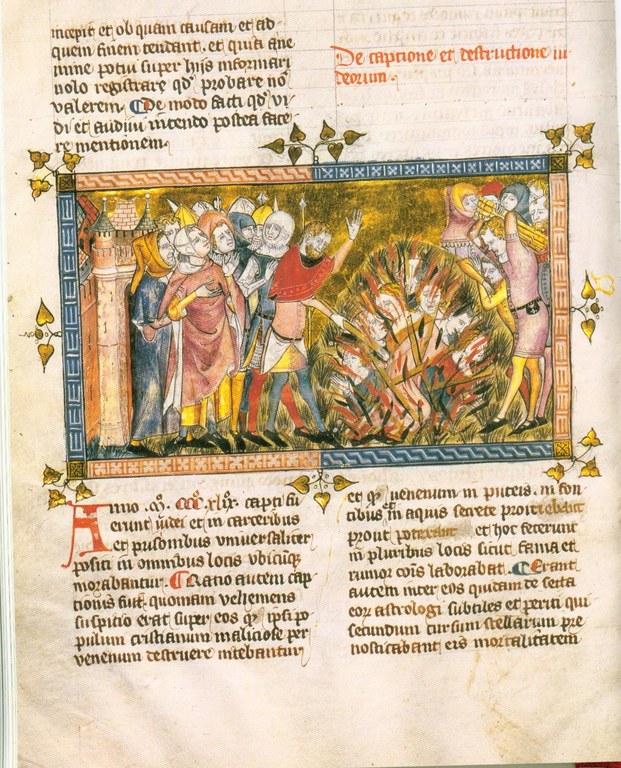 incepit et ob quam causam et ad
quem finem tendant. et quia ane
mine potui super hijs informari
nolo registrare qd' probare no
valerem. De modo facti qd' vi
di et audiui intendo postea face
re mentionem
De captione et destructione iu
deorum.
Anno .M. CCC. xlix. capti fu
erunt iudei et in carceribus
et prisonibus vniuersaliter
positi in omnibus locis vbicūq
morabantur. Ratio autem cap
tionis fuit. quoniam vehemens
suspitio erat super eos q' ipsi po
pulum cristianum maliciose per
venenum destruere intēbantur
et q' uenenum in puteis. in fon
tibus et in aquis secrete proiciebant
prout poterant et hoc fecerunt
in pluribus locis sicut fama et
rumor cōis laborabat. Erant
autem inter eos quidam de secta
eor astrologi subtiles et periti qui
secundum cursum stellarum pre
nosticabant eis mortalitatem